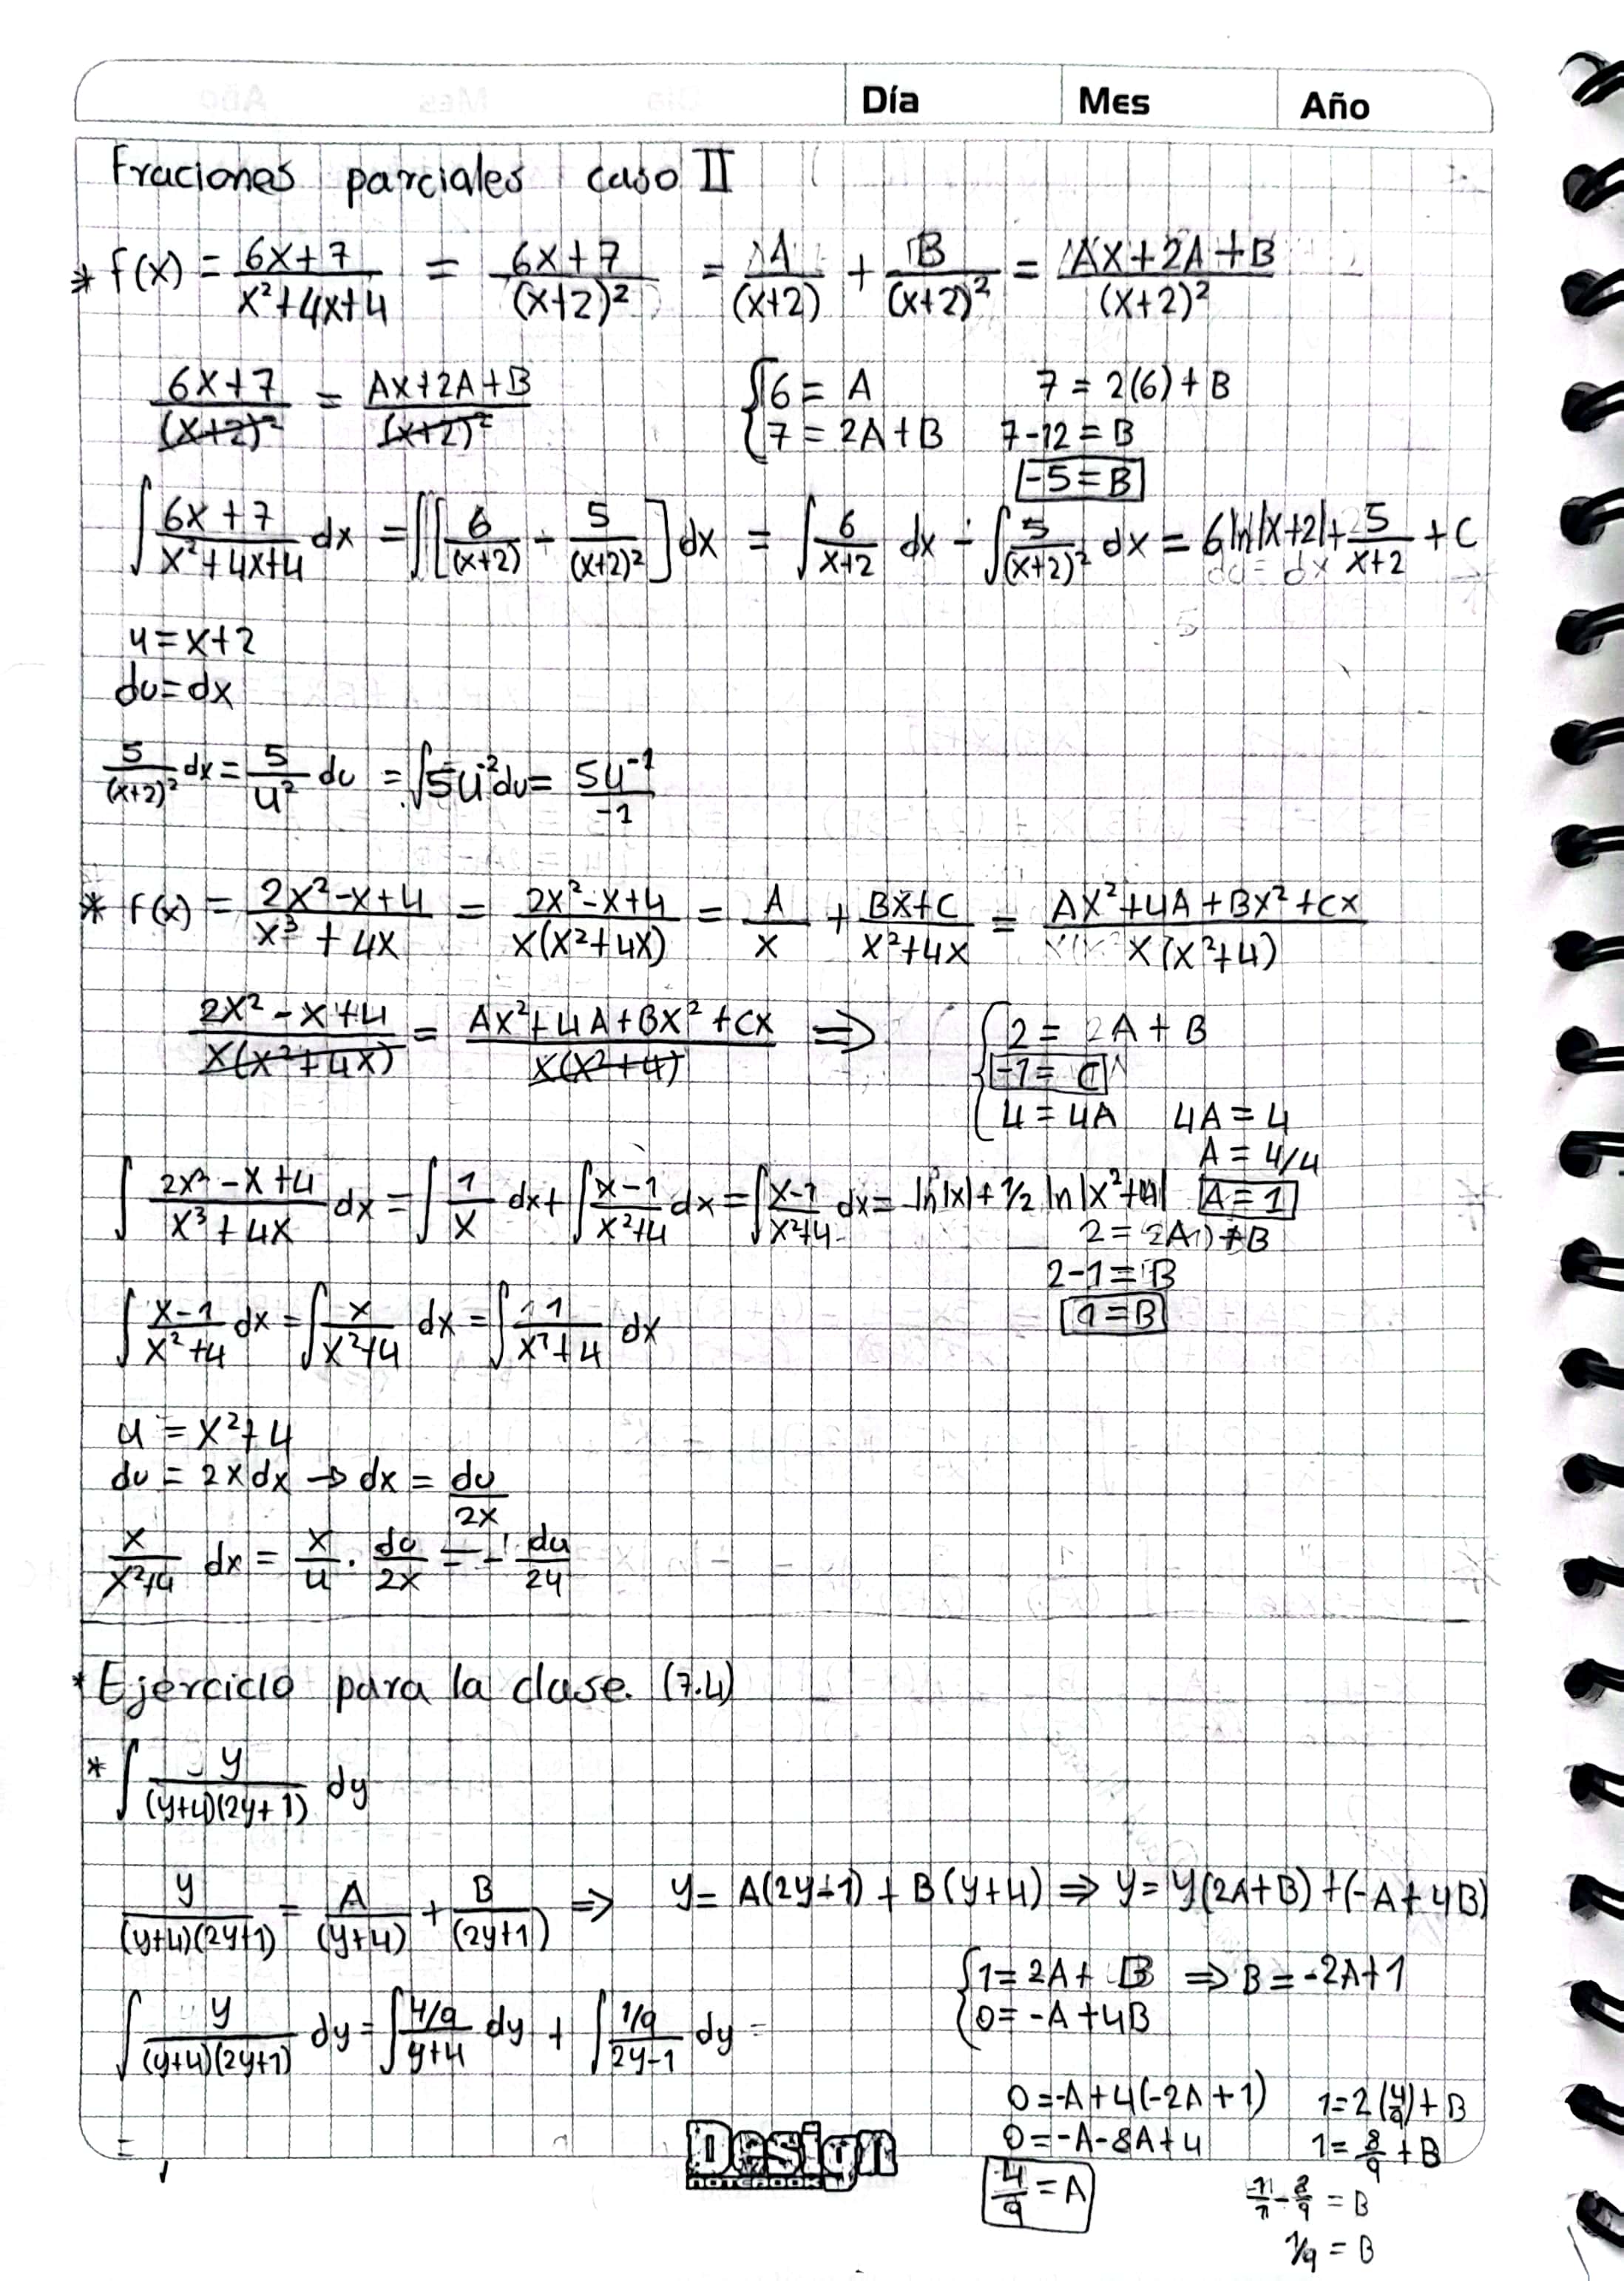 Día Mes Año
Fraciones parciales caso II
* f(x) = (6x+7)/(x²+4x+4) = (6x+7)/(x+2)² = A/(x+2) + B/(x+2)² = (Ax+2A+B)/(x+2)²
(6x+7)/(x+2)² = (Ax+2A+B)/(x+2)² { 6 = A 7 = 2(6)+B
7 = 2A+B 7-12 = B
-5 = B
∫ (6x+7)/(x²+4x+4) dx = ∫[6/(x+2) - 5/(x+2)²] dx = ∫ 6/(x+2) dx - ∫ 5/(x+2)² dx = 6 ln|x+2| + 5/(x+2) + C
u = x+2
du = dx
5/(x+2)² dx = 5/u² du = ∫5u⁻²du = 5u⁻¹/-1
* f(x) = (2x²-x+4)/(x³+4x) = (2x²-x+4)/(x(x²+4x)) = A/x + (Bx+C)/(x²+4x) = (Ax²+4A+Bx²+Cx)/(x(x²+4))
(2x²-x+4)/(x(x²+4x)) = (Ax²+4A+Bx²+Cx)/(x(x²+4)) ⇒ { 2 = 2A+B
-1 = C
4 = 4A 4A = 4
A = 4/4
∫ (2x²-x+4)/(x³+4x) dx = ∫ 1/x dx + ∫ (x-1)/(x²+4) dx = ∫ (x-1)/(x²+4) dx = ln|x| + 1/2 ln|x²+4| A = 1
2 = 2A1)+B
2-1 = B
1 = B
∫ (x-1)/(x²+4) dx = ∫ x/(x²+4) dx = ∫ 1/(x²+4) dx
u = x²+4
du = 2x dx → dx = du/2x
x/(x²+4) dx = x/u · du/2x = - du/2u
* Ejercicio para la clase. (7.4)
* ∫ y/((y+4)(2y+1)) dy
y/((y+4)(2y+1)) = A/(y+4) + B/(2y+1) ⇒ y = A(2y-1) + B(y+4) ⇒ y = y(2A+B) + (-A+4B)
{ 1 = 2A+B ⇒ B = -2A+1
0 = -A+4B
∫ y/((y+4)(2y+1)) dy = ∫ (4/9)/(y+4) dy + ∫ (1/9)/(2y-1) dy =
0 = -A+4(-2A+1) 1 = 2(4/9)+B
0 = -A-8A+4 1 = 8/9 + B
4/9 = A
- 8/9 = B
1/9 = B
=
Design
NOTEBOOK